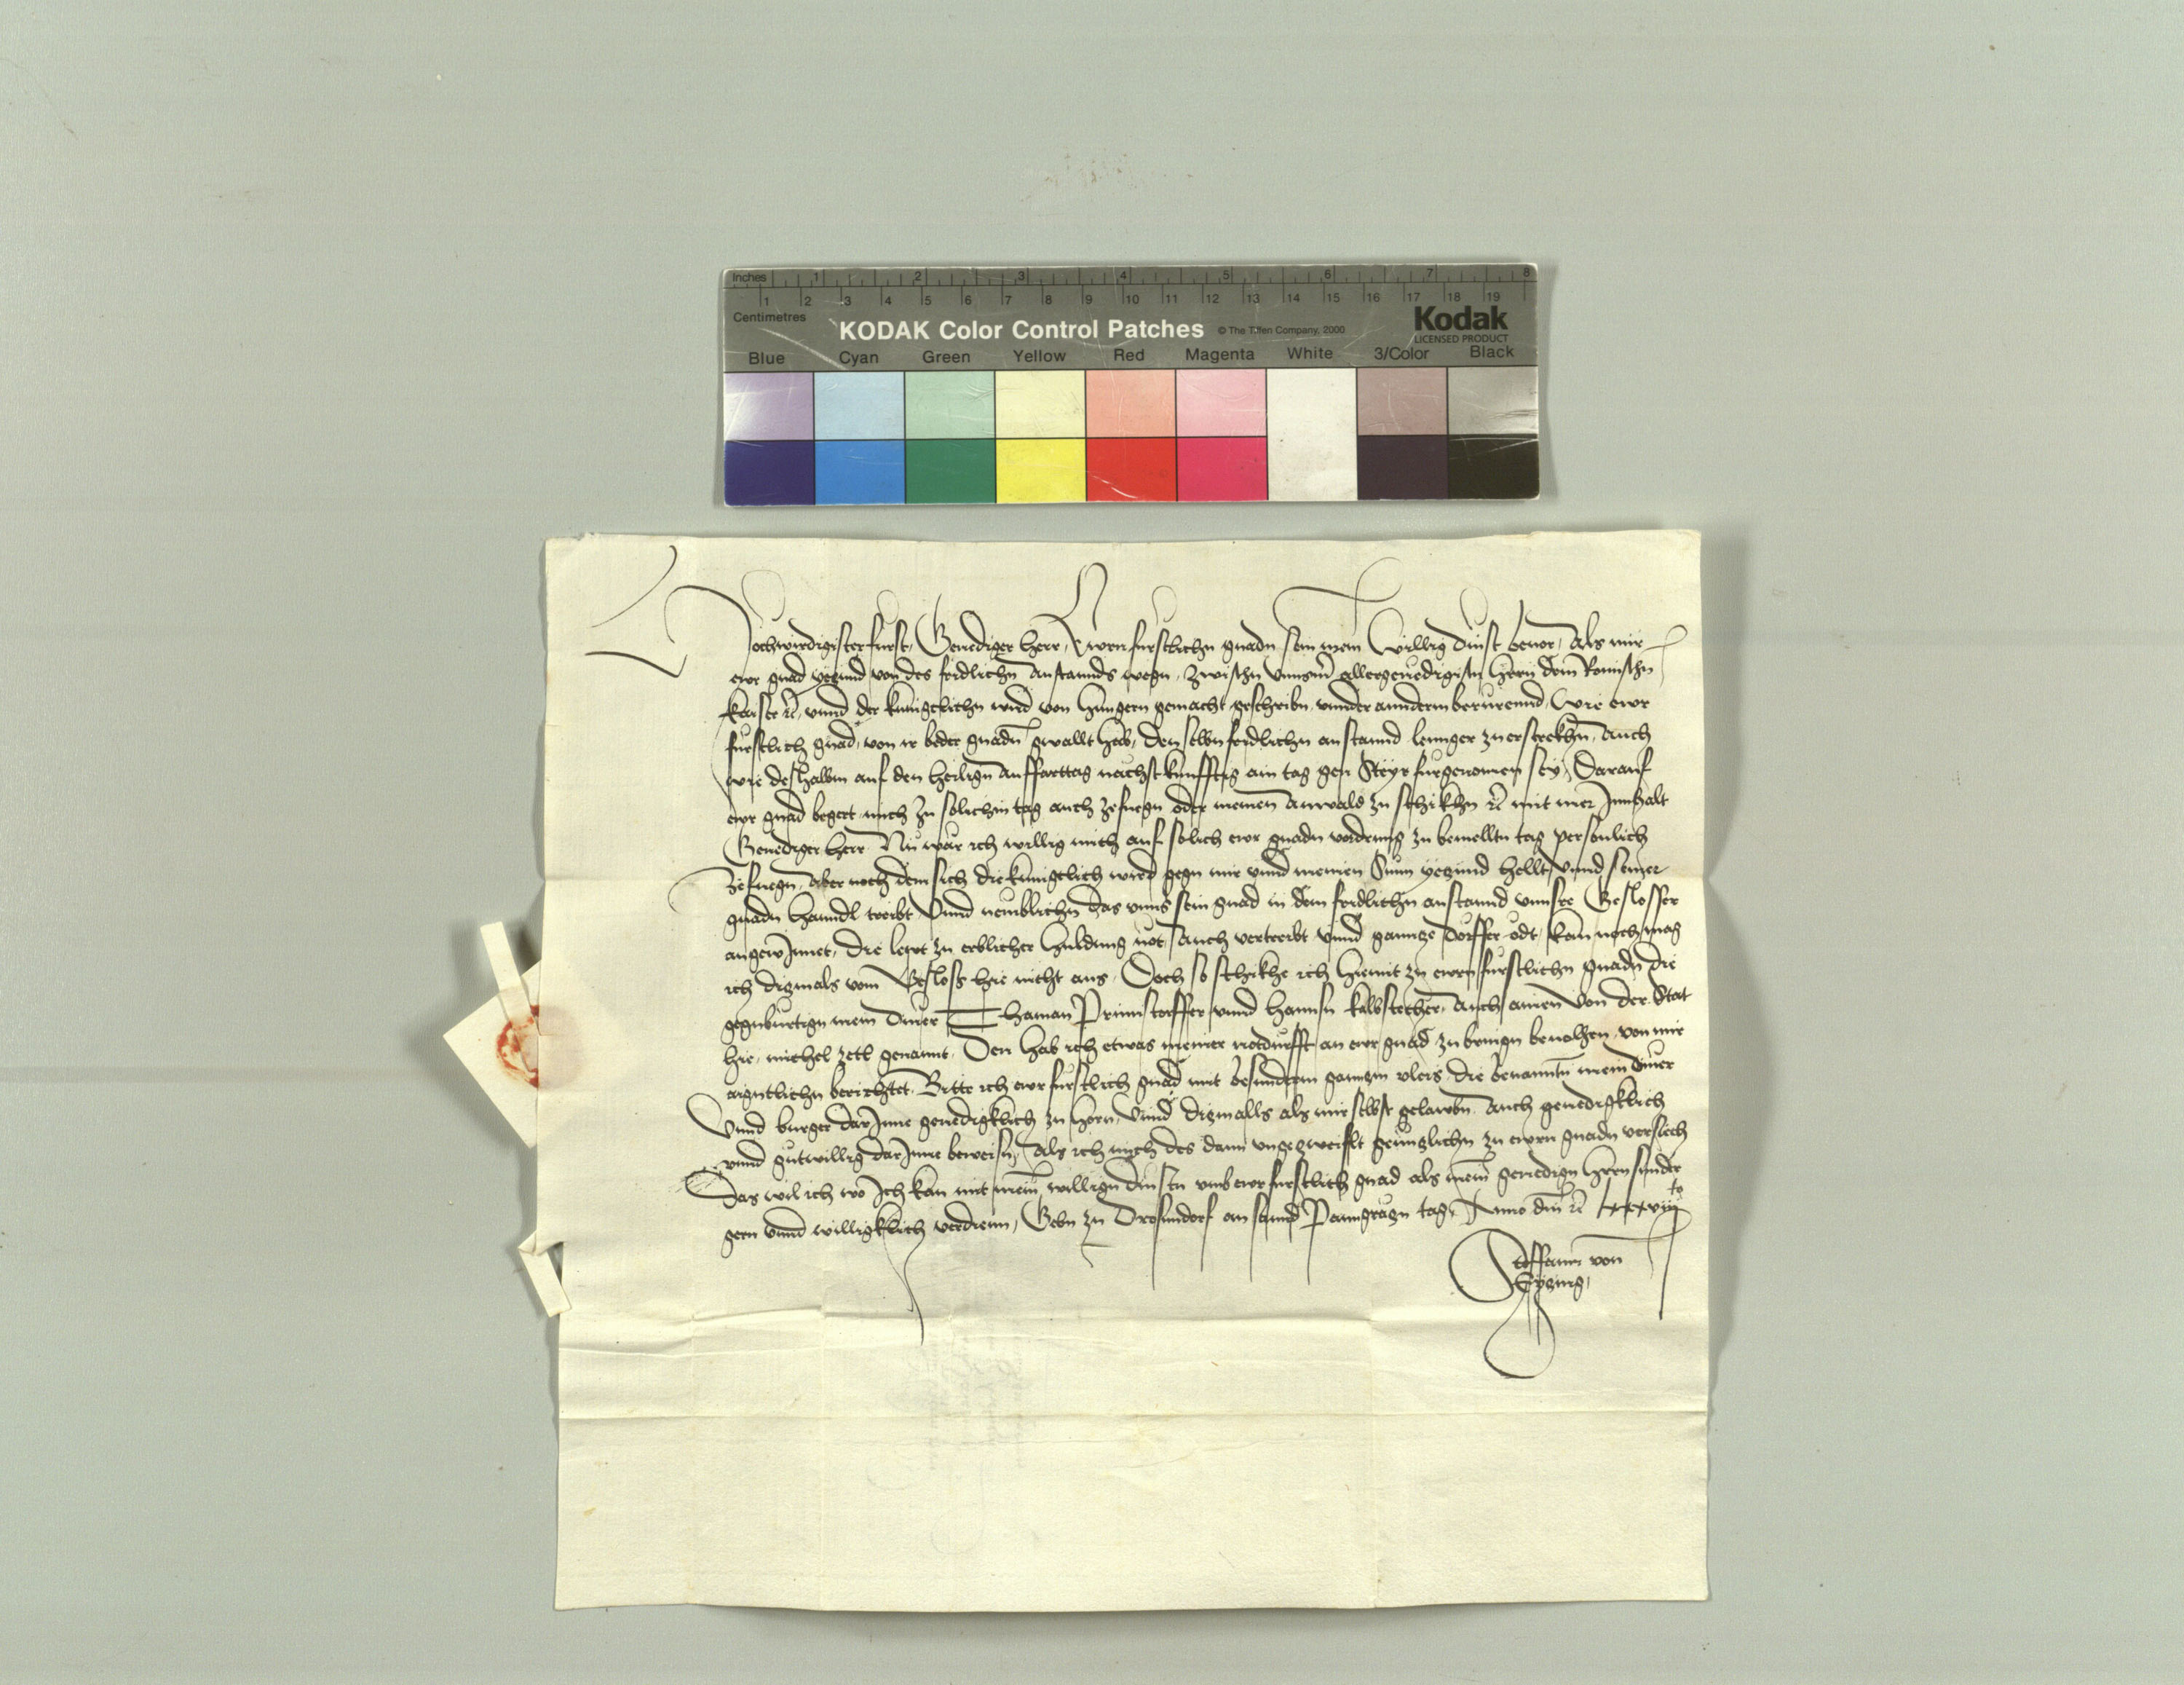 Inches 1 2 3 4 5 6 7 8
1 2 3 4 5 6 7 8 9 10 11 12 13 14 15 16 17 18 19
Centimetres
KODAK Color Control Patches © The Tiffen Company, 2000 Kodak
LICENSED PRODUCT
Blue Cyan Green Yellow Red Magenta White 3/Color Black
Hochwirdigister furst, Genediger herr, Ewrn furstlichn gnadn sein mein willig dinst beuor, Als mir
ewr gnad yeczund von des fridlichn Anstannds wegn, zwischn vnnserm allergenedigistn herrn dem Romischn
kaiser etc, vnnd der kuniglichn wird von Hungern gemacht, geschribn, vnnder annderm berurennd, wie ewr
furstlich gnad, von ir beder gnadn gwallt hab, den selbn fridlichn anstannd lennger zuerstrekhn, Auch
wie deshalbn auf den heilign Auffarttag nachstkunfftig ain tag gen Steyr furgenomen sey, Darauf
ewr gnad begert mich zu solichm tag auch zefuegn oder meinen Anwald zu schikhn etc mit mer Innhalt
Genediger herr Nu war ich willig mich auf solich ewr gnadn vordrung zu bemelltn tag personlich
zefuegn, Aber nach dem sich die kuniglich wird gegn mir vnnd meinen Sunn yeczund hellt, vnnd seiner
gnadn hanndl treibt, Vnnd nemblichn das vnns sein gnad in dem fridlichn anstannd vnnsre Geslosser
angewInnet, die lewt zu erblicher huldung not, Auch vertreibt vnnd gannze dorffer odt, kan noch mag
ich dizmals vom Gesloss hie nicht aus, Doch so schikhe ich hiemit zu ewrn furstlichn gnadn die
gegnburtign mein diner Haman Prinnstorffer vnnd Hannsn kalbstecher, Auch ainen von der Stat
hie, michel zetl genannt, Den hab ich etwas meiner notdurfft an ewr gnad zu bringn beuolhen, von mir
aigntlichn berichtet, Bitte ich ewr furstlich gnad mit besundern ganzm vleis, die benanntn mein diner
Vnnd burger darJnne genedigklich zu horn, Vnnd dizmalls als mir selbs gelawbn, Auch genedigklich
vnnd gutwillig darJnne beweisn, Als ich mich des dann vngezweiflt genntzlichn zu ewrn gnadn versiech
Das wil ich wo Ich kan mit meinn willign dinstn vmb ewr furstlich gnad als mein genedign herrn sunder
gern vnnd willigklich verdienn, Gebn zu Drosendorf an sannd Panngrazn tag, Anno dni etc lxxxviijto
Steffann von
Eyzing,